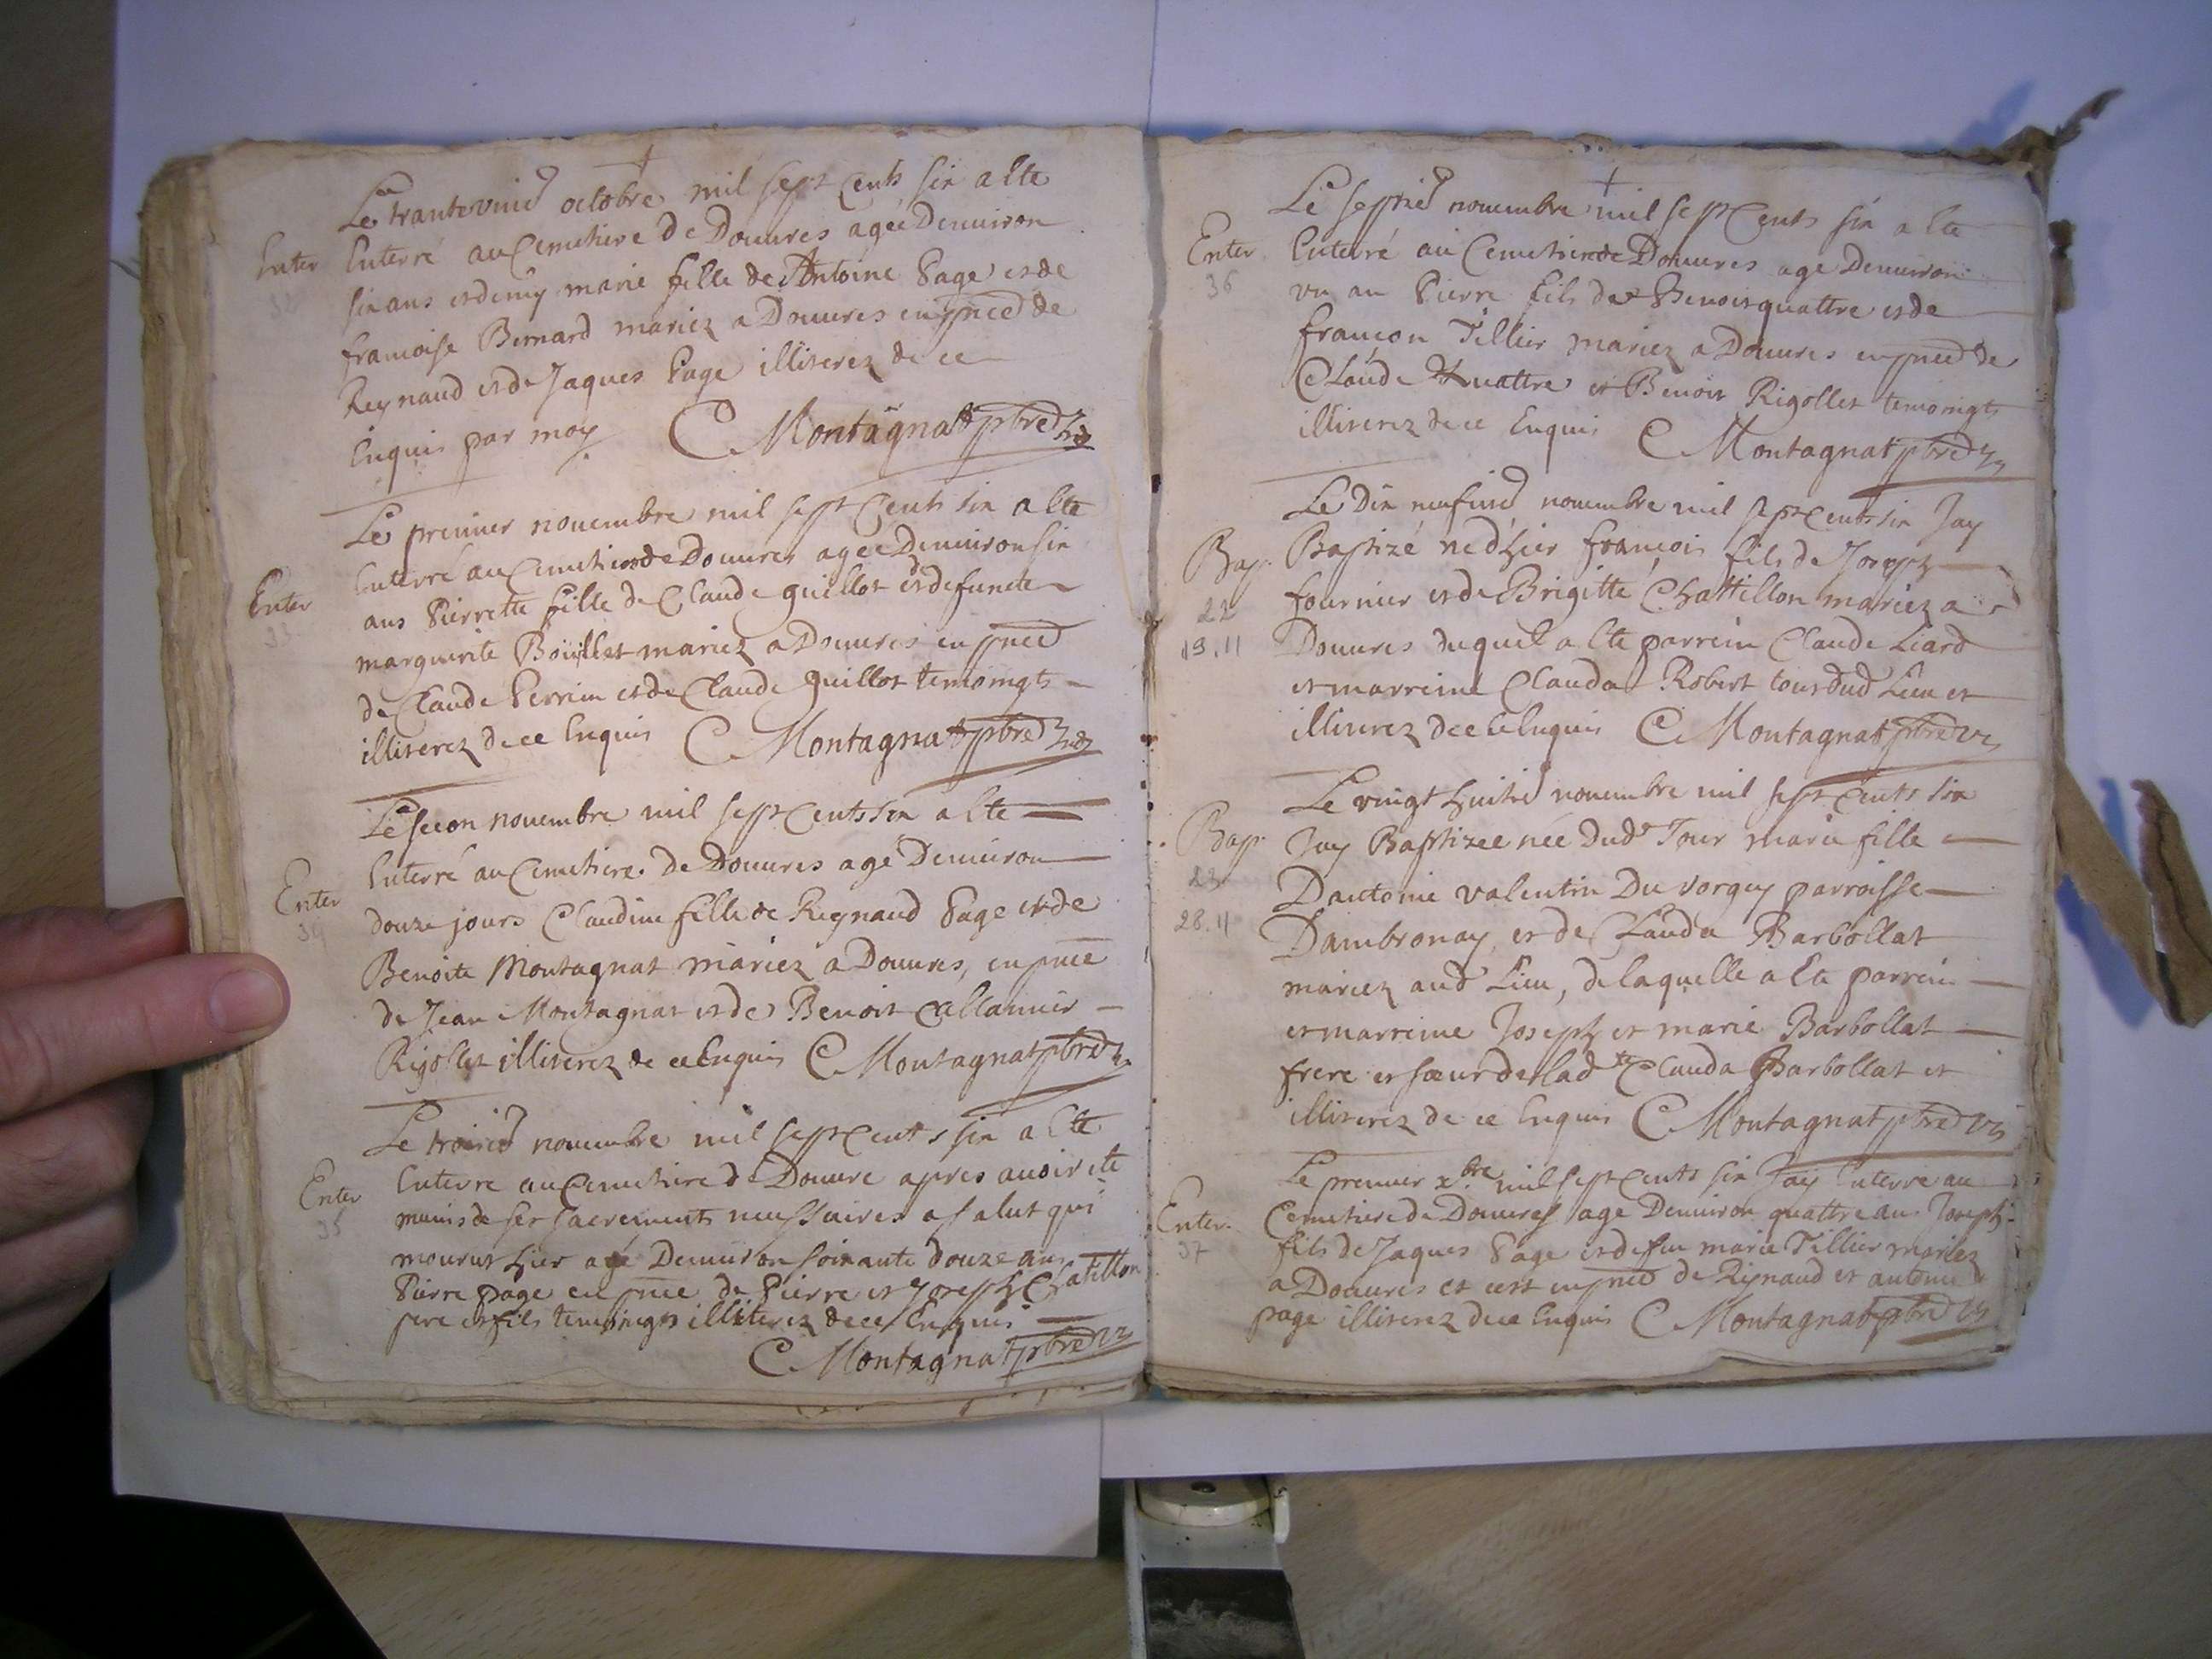 Le tranteunied octobre mil sept cents six a Ete
Enter Enterré au Cemetiere de Douures agée Denuiron
32 six ans et demy marie fille de Antoine Page et de
francoise Bernard mariez a Douures en pnce de
Reynaud et de Jaques Page illiterez de ce
Enquis par moy C Montagnat pbre
Le premier nouembre mil sept Cents six a Ete
Enterré au Cemetiere de Douures agée Denuiron six
Enter ans Pierrette fille de Claude guillot et defuncte
33 marguerite Bouillet mariez a Douures en pnce
de Claude Perrin et de Claude guillot temoingts
illiterez de ce Enquis C Montagnat pbre
Le secon nouembre mil sept Cents six a Ete
Enterré au Cemetiere de Douures agé Denuiron
Enter douze jours Claudine fille de Reynaud Page et de
34 Benoite Montagnat mariez a Douures, en pnce
de Jean Montagnat et de Benoit Callamier
Rigollet illiterez de ce Enquis C Montagnat pbre
Le troisied nouembre mil sept Cents six a Ete
Enter Enterre au Cemetiere de Douure apres auoir ete
35 munis de ses sacrements neussaires a salut qui
mourut hier agé Denuiron soixante douze ans
Pierre page en pnce de Pierre et Joseph Chatillon
pere et fils temoingts illiterez de ce Enquis
C Montagnat pbre
Le septied nouembre mil sept Cents six a Ete
Enter Enterré au Cemetiere de Douures age Denuiron
36 vn an Pierre fils de Benoit quattre et de
françon Tillier mariez a Douures en pnce de
Claude Quattre et Benoit Rigollet temoingts
illiterez de ce Enquis C Montagnat pbre
Le Dix neufuied nouembre mil sept Cents six Jay
Bap. Baptizé né d'hier françois fils de Joseph
22 fournier et de Brigitte Chattillon mariez a
19.11 Douures duquel a Ete parrein Claude Liard
et marreine Clauda Robert tous dud Lieu et
illiterez de ce Enquis C Montagnat pbre
Le vingt huitied nouembre mil sept Cents six
Bap. Jay Baptizee née dudt Jour marie fille
23 Dantoine valentin Du vorgey parroisse
28.11 Dambronay, et de Clauda Barbollat
mariez aud Lieu, de laquelle a Ete parrein
et marreine Joseph et marie Barbollat
frere et sœur de lad te Clauda Barbollat et
illiterez de ce Enquis C Montagnat pbre
Le premier xbre mil sept Cents six Jay Enterre au
Enter. Cemetiere de Douures age Denuiron quattre ans Joseph
37 fils de Jaques Page et defun marie Tillier mariez
a Douures et cest en pnce de Reynaud et antoine
page illiterez de ce Enquis C Montagnat pbre